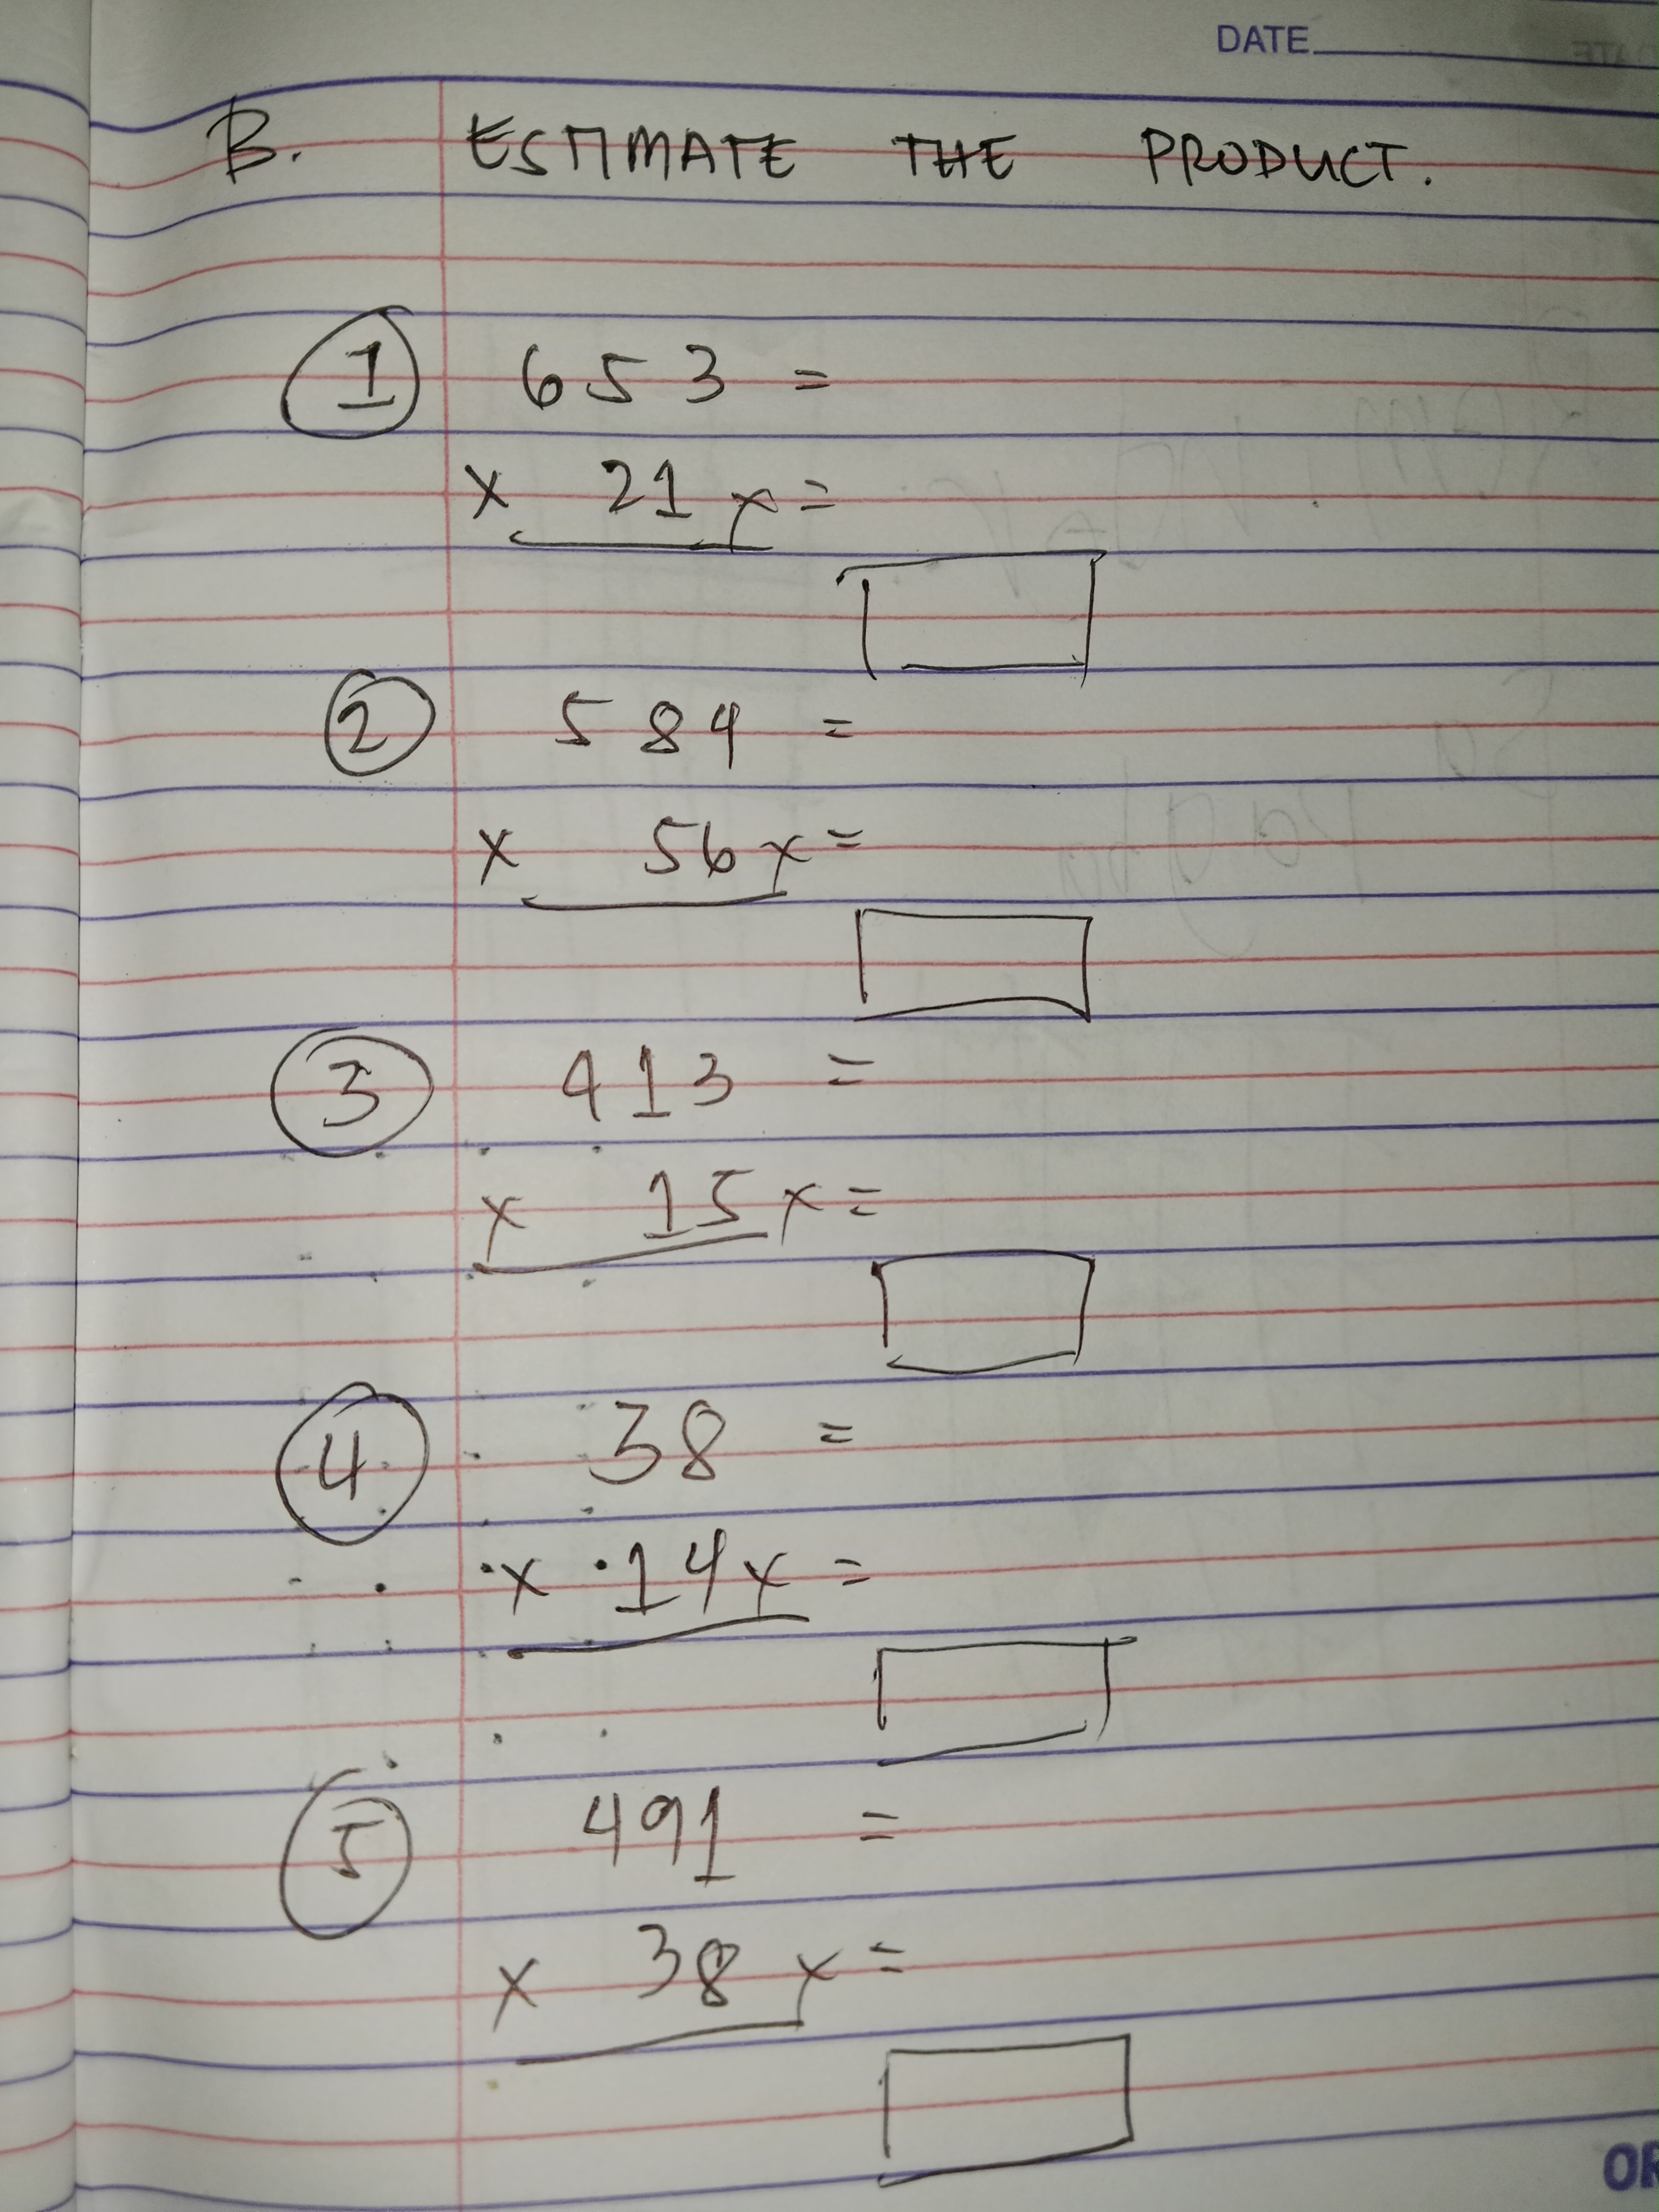 DATE
B. ESTIMATE THE PRODUCT.
1 653 =
x 21 x =
2 584 =
x 56 x =
3 413 =
x 15 x =
4 38 =
x 14 x =
5 491 =
x 38 x =